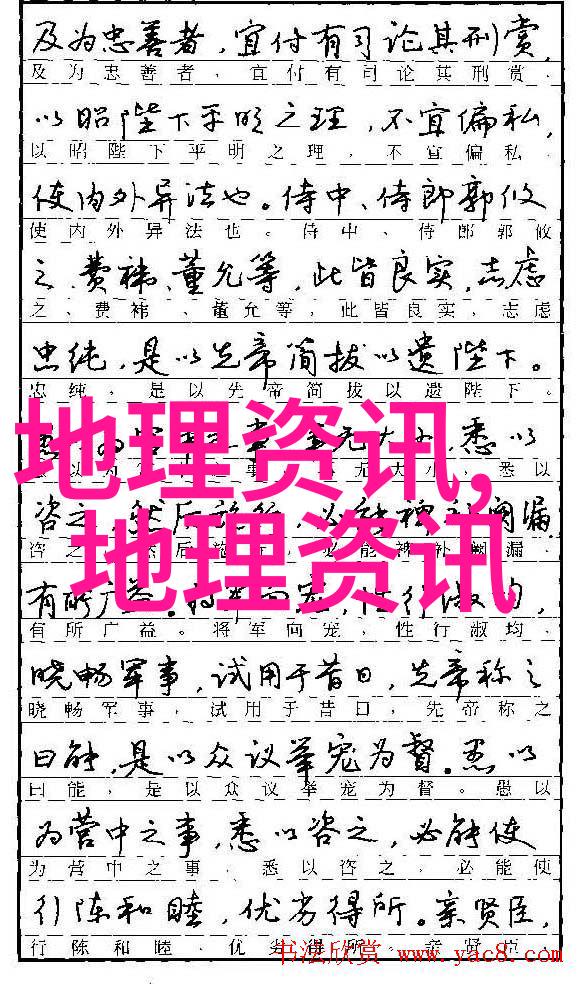 及为忠善者，宜付有司论其刑赏，
及为忠善者，宜付有司论其刑赏，
以昭陛下平明之理，不宜偏私，
以昭陛下平明之理，不宜偏私，
使内外异法也。侍中、侍郎郭攸
使内外异法也。侍中、侍郎郭攸
之、费袆、董允等，此皆良实，志虑
之、费袆、董允等，此皆良实，志虑
忠纯，是以先帝简拔以遗陛下。
忠纯，是以先帝简拔以遗陛下。
悉以
地理资讯,
无大小，悉以
咨之，然后施行，必能裨补阙漏，
咨之 然后施行，必能裨补阙漏，
地理资讯
有所广益。将军向宠，性行淑均，
有所广益。将军向宠，性行淑均，
晓畅军事，试用于昔日，先帝称之
晓畅军事，试用于昔日，先帝称之
曰能，是以众议举宠为督。愚以
曰能，是以众议举宠为督。愚以
为营中之事，悉以咨之，必能使
为营中之事，悉以咨之，必能使
行陈和睦，优劣得所。亲贤臣，
行陈和睦，优劣得所。亲贤臣，
书法欣赏 www.yac8.com